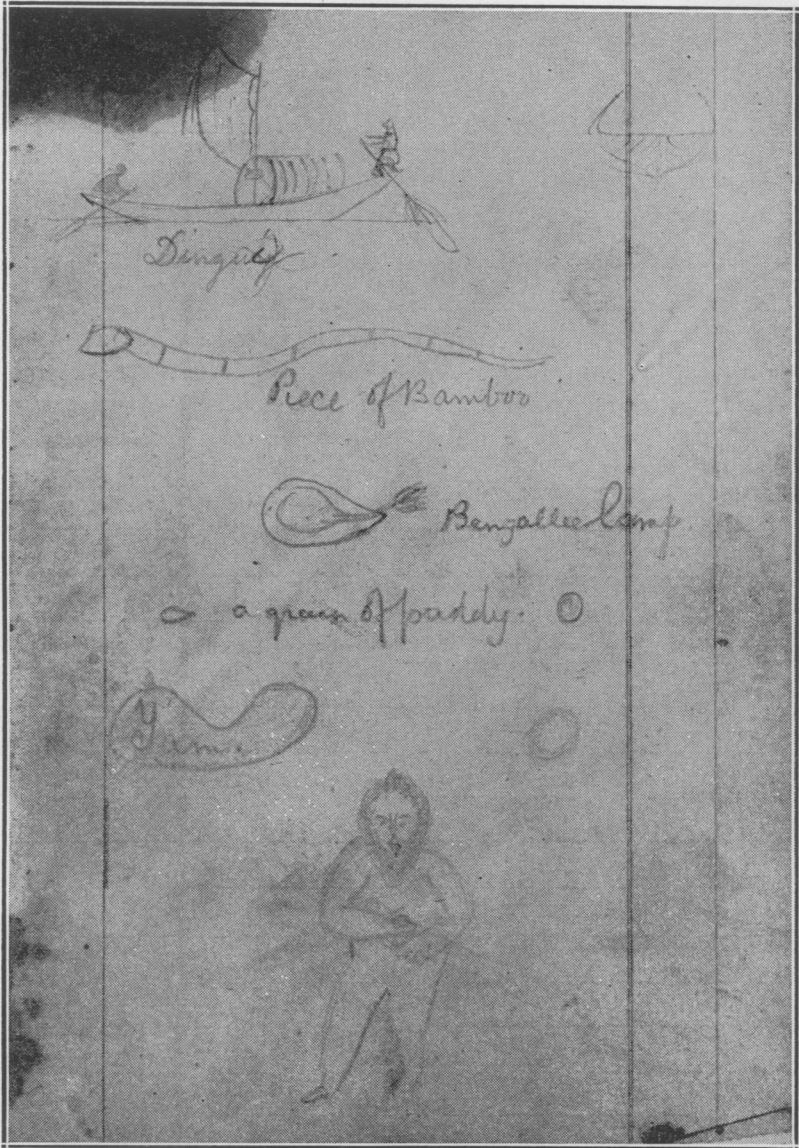 Dinguiy
Piece of Bamboo
Bengallee Lamp
a grain of paddy.
Yam.